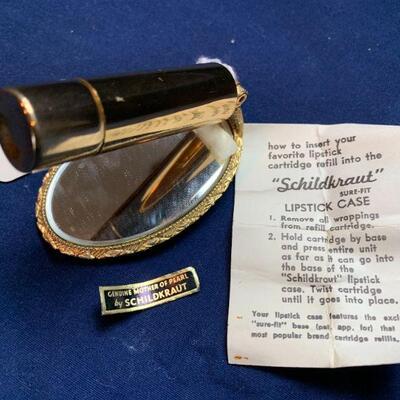 how to insert your
favorite lipstick
cartridge refill into the
"Schildkraut"
SURE-FIT
LIPSTICK CASE
1. Remove all wrappings
from refill cartridge.
2. Hold cartridge by base
and press entire unit
as far as it can go into
the base of the
"Schildkraut" lipstick
case. Twist cartridge
until it goes into place.
Your lipstick case features the excl
"sure-fit" base (pat. app. for) that
most popular brand cartridge refills.
GENUINE MOTHER OF PEARL
by SCHILDKRAUT